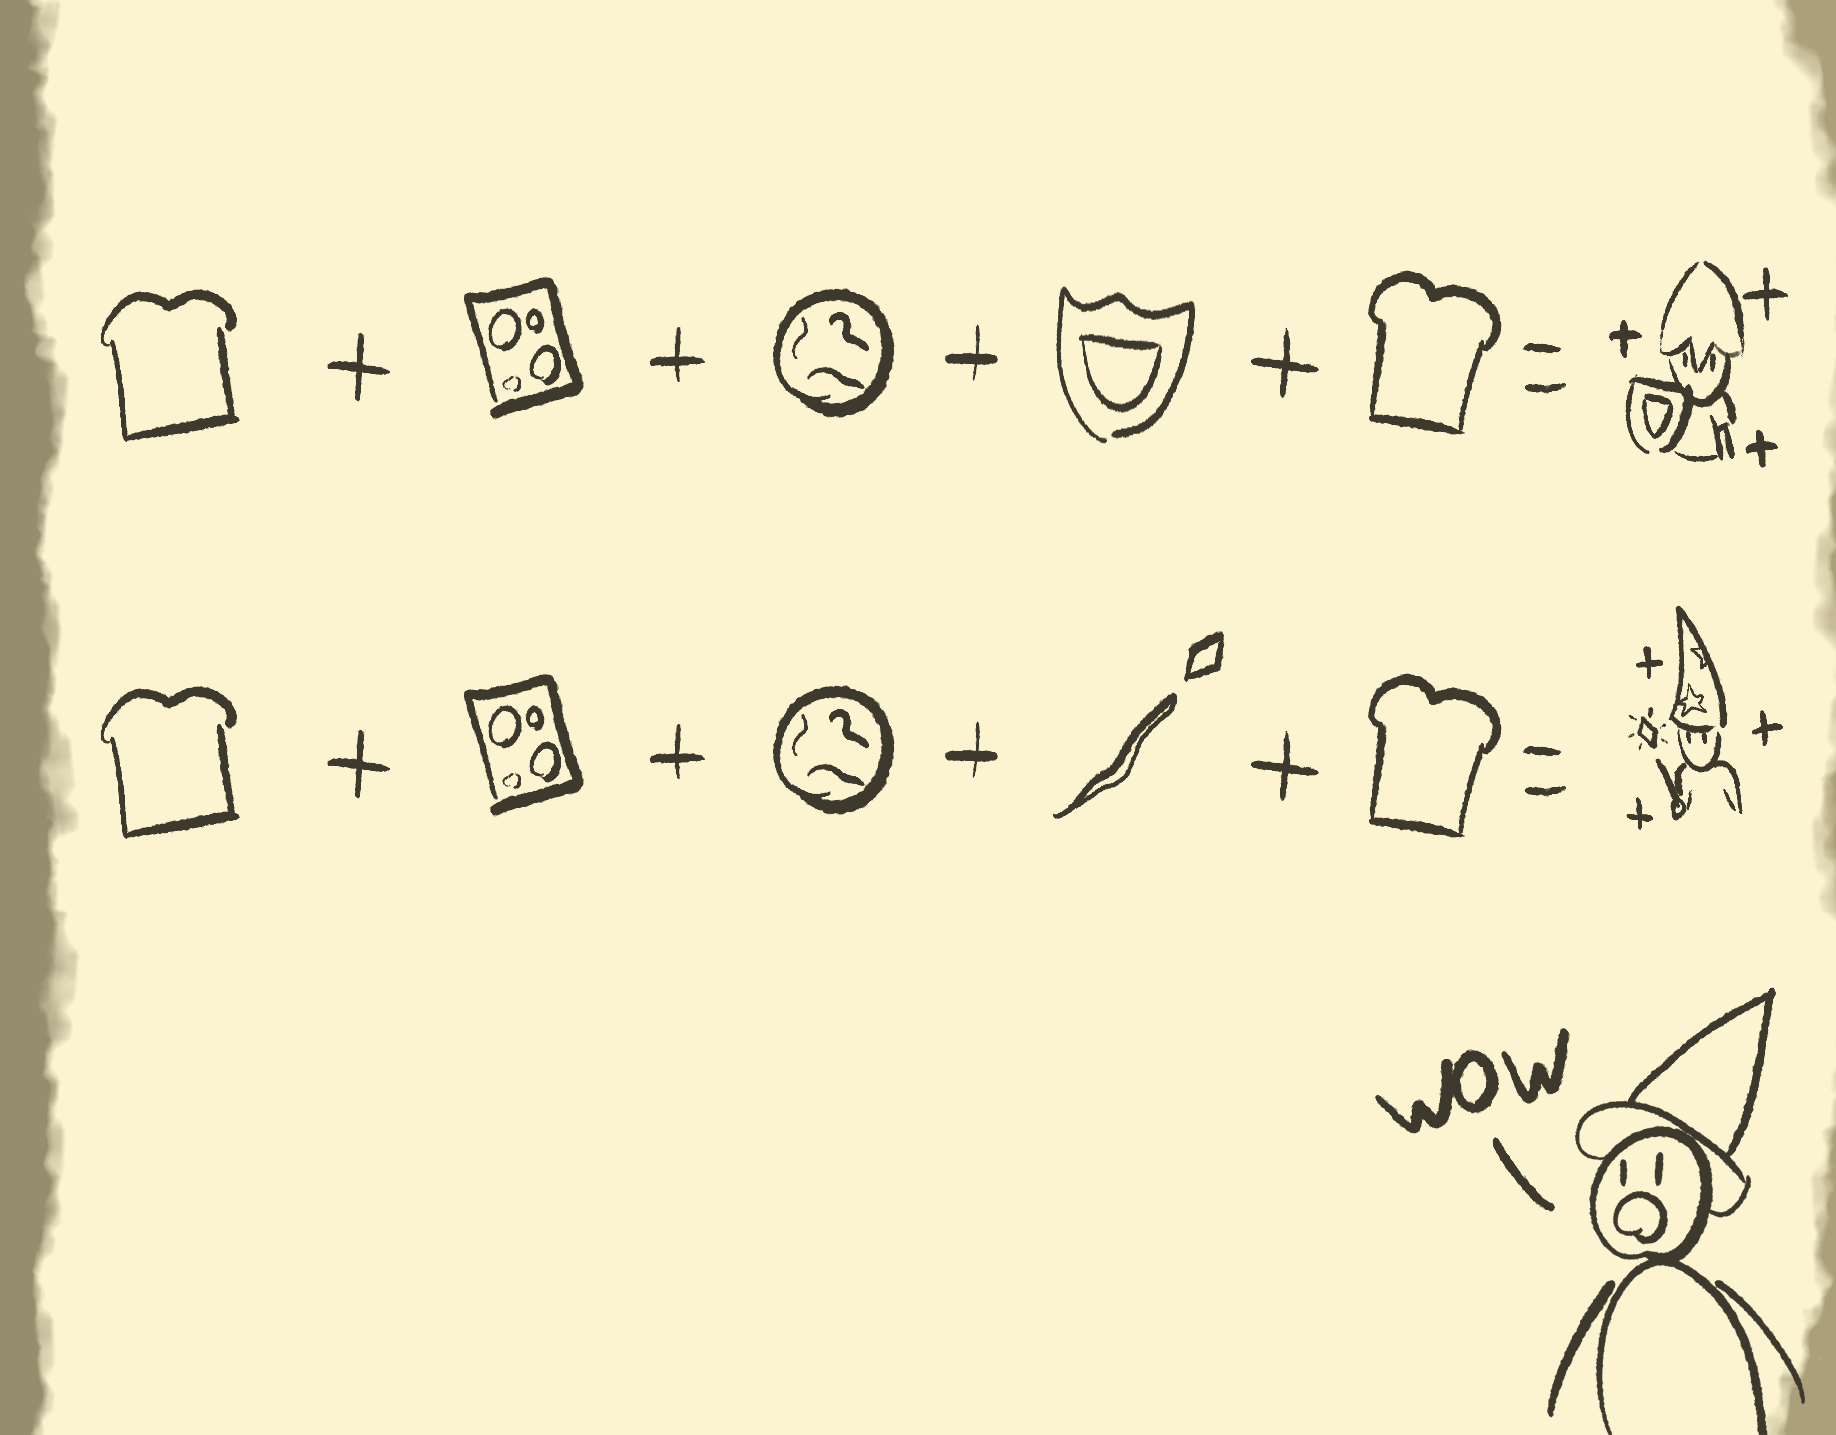 + + + + =
+ + + + =
WOW